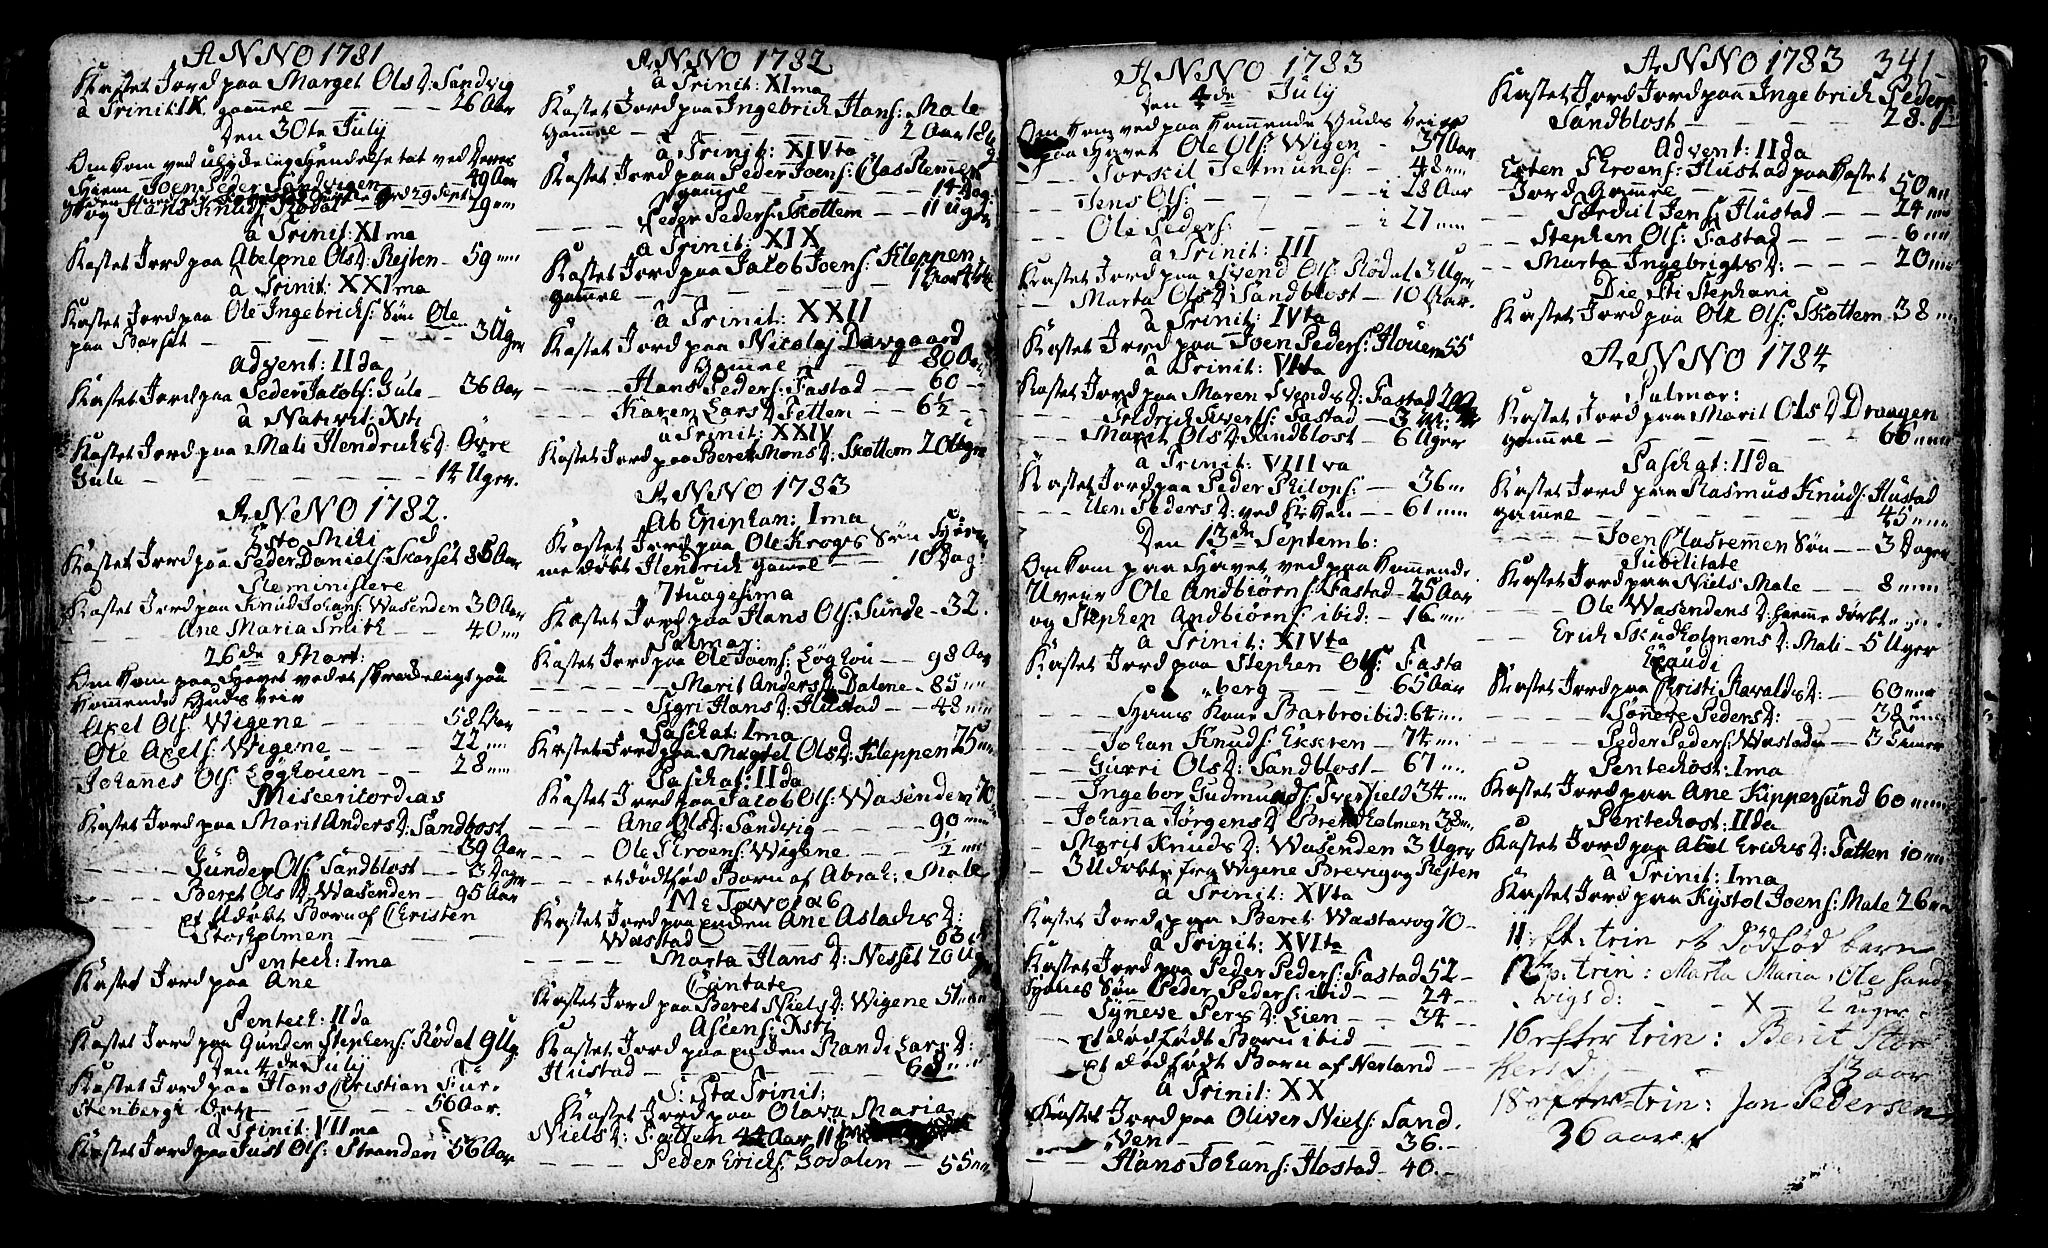 ANNO 1781
Kastet Jord paa Marget Olsd: Sandvig
â Trinit: IX gamel — — — — 26 Aar
Den 30te July
Omkom ved ulydelig Hendelse tat ved Deres
Hiem Joen Peder Sandvigen 49 Aar
og Hans Knuds: Rødal — 29 —
â Trinit: XIma
Kastet Jord paa Abelone Olsd: Rejten — 59 —
â Trinit: XXIma
Kastet Jord paa Ole Ingebrichs: Søn Ole
paa Harset — — — — 3 Uger
Advent: IIda
Kastet Jord paa Peder Jacobs: Gule — 36 Aar
â Nativit: Xsti
Kastet Jord paa Mali Hendrichsd: Øvre
Gule — — — — 14 Uger.
ANNO 1782.
Esto Mihi
Kastet Jord paa Peder Daniels: Skarset 85 Aar
Reminisere
Kastet Jord paa Knud Johans: Wasenden 30 Aar
— — Ane Maria Smith — — 40 —
26de Mart:
Omkom paa Havet ved et skrædeligt paa
komende Guds veir
Axel Ols: Wigene — — — 58 Aar
Ole Axels: Wigene — — — 22 —
Johannes Ols: Løghouen — — 28 —
Misericordias
Kastet Jord paa Marit Andersd: Sandbost
— — — — 39 Aar
— — Gunder Ols: Sandblost — — 3 Dager
— — Beret Olsd: Wasenden — 95 Aar
— — Et Udøbt Barn af Christen
— — Storholmen — — —
Pentech: Ima
Kastet Jord paa Ane
Pentech: IIda
Kastet Jord paa Gunder Stephens: Rødal 9 Ug.
Den 4de July
Kastet Jord paa Hans Christian Für-
stenbergs — — — — 56 Aar.
â Trinit: VIIma
Kastet Jord paa Just Ols: Stranden 56 Aar
ANNO 1782
â Trinit: XIma
Kastet Jord paa Ingebrich Hans: Male
Gamel — — — — 2 Aar
â Trinit: XIVta
Kastet Jord paa Peder Joens: Clas Remen
Gamel — — — 14 Dag:
— — — Peder Peders: Skottem — — 11 Uger
â Trinit: XIX
Kastet Jord paa Jacob Joens: Kleppen
gamel — — — — 1 Aar
â Trinit: XXII
Kastet Jord paa Nicolaj Davgaard
Gamel — — 80 Aar
— — — Hans Peders: Fastad — — 60 —
— — — Karen Larsd: Fetten — — 6½ —
â Trinit: XXIV
Kastet Jord paa Beret Monsd: Skottem 20 Uger
ANNO 1783
Ab Epiphan: Ima
Kastet Jord paa Ole Kroges Søn Hiem-
medøbt Hendrich gamel — — 10 Dag:
7tuagesima
Kastet Jord paa Hans Ols: Sunde — 32.
Palmar:
Kastet Jord paa Ole Joens: Løghou — — 98 Aar
— — — Marit Andersd: Dalene — 85 —
— — — Sigri Hansd: Hustad — — 48 —
Paschat: Ima
Kastet Jord paa Magrel Olsd: Kleppen 75 —
Paschat: IIda
Kastet Jord paa Jacob Ols: Wasenden 70
— — — Ane Olsd: Sandvig — — — 90 —
— — — Ole Throens: Wigene — — ½ —
— — — et dødfød Barn af Abrah: Male
Kastet Jord paa Enden Ane Aslachsd:
Wastad — — — 63
— — — Marta Hansd: Nesset 20 Ug
Cantate
Kastet Jord paa Beret Nielsd: Wigene 51 —
Ascens: Xsti
Kastet Jord paa Enden Randi Larsd:
Hustad — — — — 68 —
S: Sta Trinit:
Kastet Jord paa Olava Maria
Nielsd: Fatten 44 Aar 11
— — — Peder Erichs: Godalen — 55 —
ANNO 1783
Den 4de July
Omkom ved paa komende Guds Veir
paa Havet Ole Ols: Wigen — 37 Aar
— — — Torskil Tetmunds: — — 48 —
— — Jens Ols: — — — — i 28 Aar
— — Ole Peders: — — — i 27 —
â Trinit: III
Kastet Jord paa Svend Ols: Rødal 3 Uger
— — Marta Olsd: Sandblost — 10 Aar.
â Trinit: IVta
Kastet Jord paa Joen Peders: Houem 55
â Trinit: VIta
Kastet Jord paa Maren Svendsd: Fastad 20
— — — Fridrich Iverss: Fastad — 3
— — — Marit Olsd: Sandblost — 6 Uger
â Trinit: VIIIva
Kastet Jord paa Peder Philops: — 36 —
— — — Uen Pedersd: ved Kirken — — 61 —
Den 13de Septemb:
Omkom paa Havet ved paa komende
Uveir Ole Andbiørns: Fastad — 25 Aar
og Stephen Andbiørns: ibid: — 16 —
â Trinit: XIVta
Kastet Jord paa Stephen Ols: Fasta
berg — — — 65 Aar
— — — Hans Kone Barbro ibid: 64 —
— — — Johan Knuds: Ekkren — 74 —
— — Gurri Olsd: Sandblost — 67 —
— — Ingebor Gudmundsd: Tverlield 34 —
— — Johanna Jørgensd: Bredholmen 38 —
— — Marit Knudsd: Wasenden 3 Uger
— — 3 Udøbte fra Wigene Brevig og Rejten
â Trinit: XVta
Kastet Jord paa Beret Wastavog 70 —
â Trinit: XVIta
Kastet Jord paa Peder Peders: Fastad 52 —
Hans Søn Peder Peders: ibid — — 24 —
— — Synneve Persd: Lien — — 34 —
— — Et dødfødt Barn ibid — — —
— — Et dødfødt Barn af Nerland — —
â Trinit: XX
Kastet Jord paa Oliver Niels: Sand.
ven — — — — 36. —
— — Hans Johans: Hostad — 40. —
ANNO 1783 341
Kastet Jord Jord paa Ingebrich Peders:
Sandblost — — — — 28.
Advent: IIda
Esten Throens: Hustad paa Kastet
Jord Gamel — — — 50 —
— — Sordul Jens: Hustad — — 24 —
— — Stephen Ols: Fastad — — — 6 —
— — Marta Ingebrigtsd: — — — 20 —
Die Sti Stephani
Kastet Jord paa Ole Ols: Skottem — 38 —
ANNO 1784
Palmar:
Kastet Jord paa Marit Olsd: Draagen
gamel — — — — 66 —
Paschat: IIda
Kastet Jord paa Rasmus Knuds: Hustad
gamel — — — — 45 —
— — — Joen Clasremen Søn — — 3 Dager
Jubilitate
Kastet Jord paa Niels Male — — 8 —
— — Ole Wasendens D: hieme døbt —
— — Erich Skudholmens D: Mali — 5 Uger
Exaudi
Kastet Jord paa Christi Havaldsd: — 60 —
— — — Sønneve Pedersd: — — — 38 —
— — — Peder Peders: Wastad — 3 Timer
Pentechost: Ima
Kastet Jord paa Ane Kippersund 60 —
Pentechost: IIda
Kastet Jord paa Abel Erichsd: Tatten 10 —
â Trinit: Ima
Kastet Jord paa Kystol Joens: Male 26
11 eft: trin et dødfød barn
12 p: trin: Marta Maria Ole Sand
vigs d: — — X — 2 uger
16 efter trin: Berit Stor
— — — 13 aar
18 efter trin: Jon Pedersen
36 aar